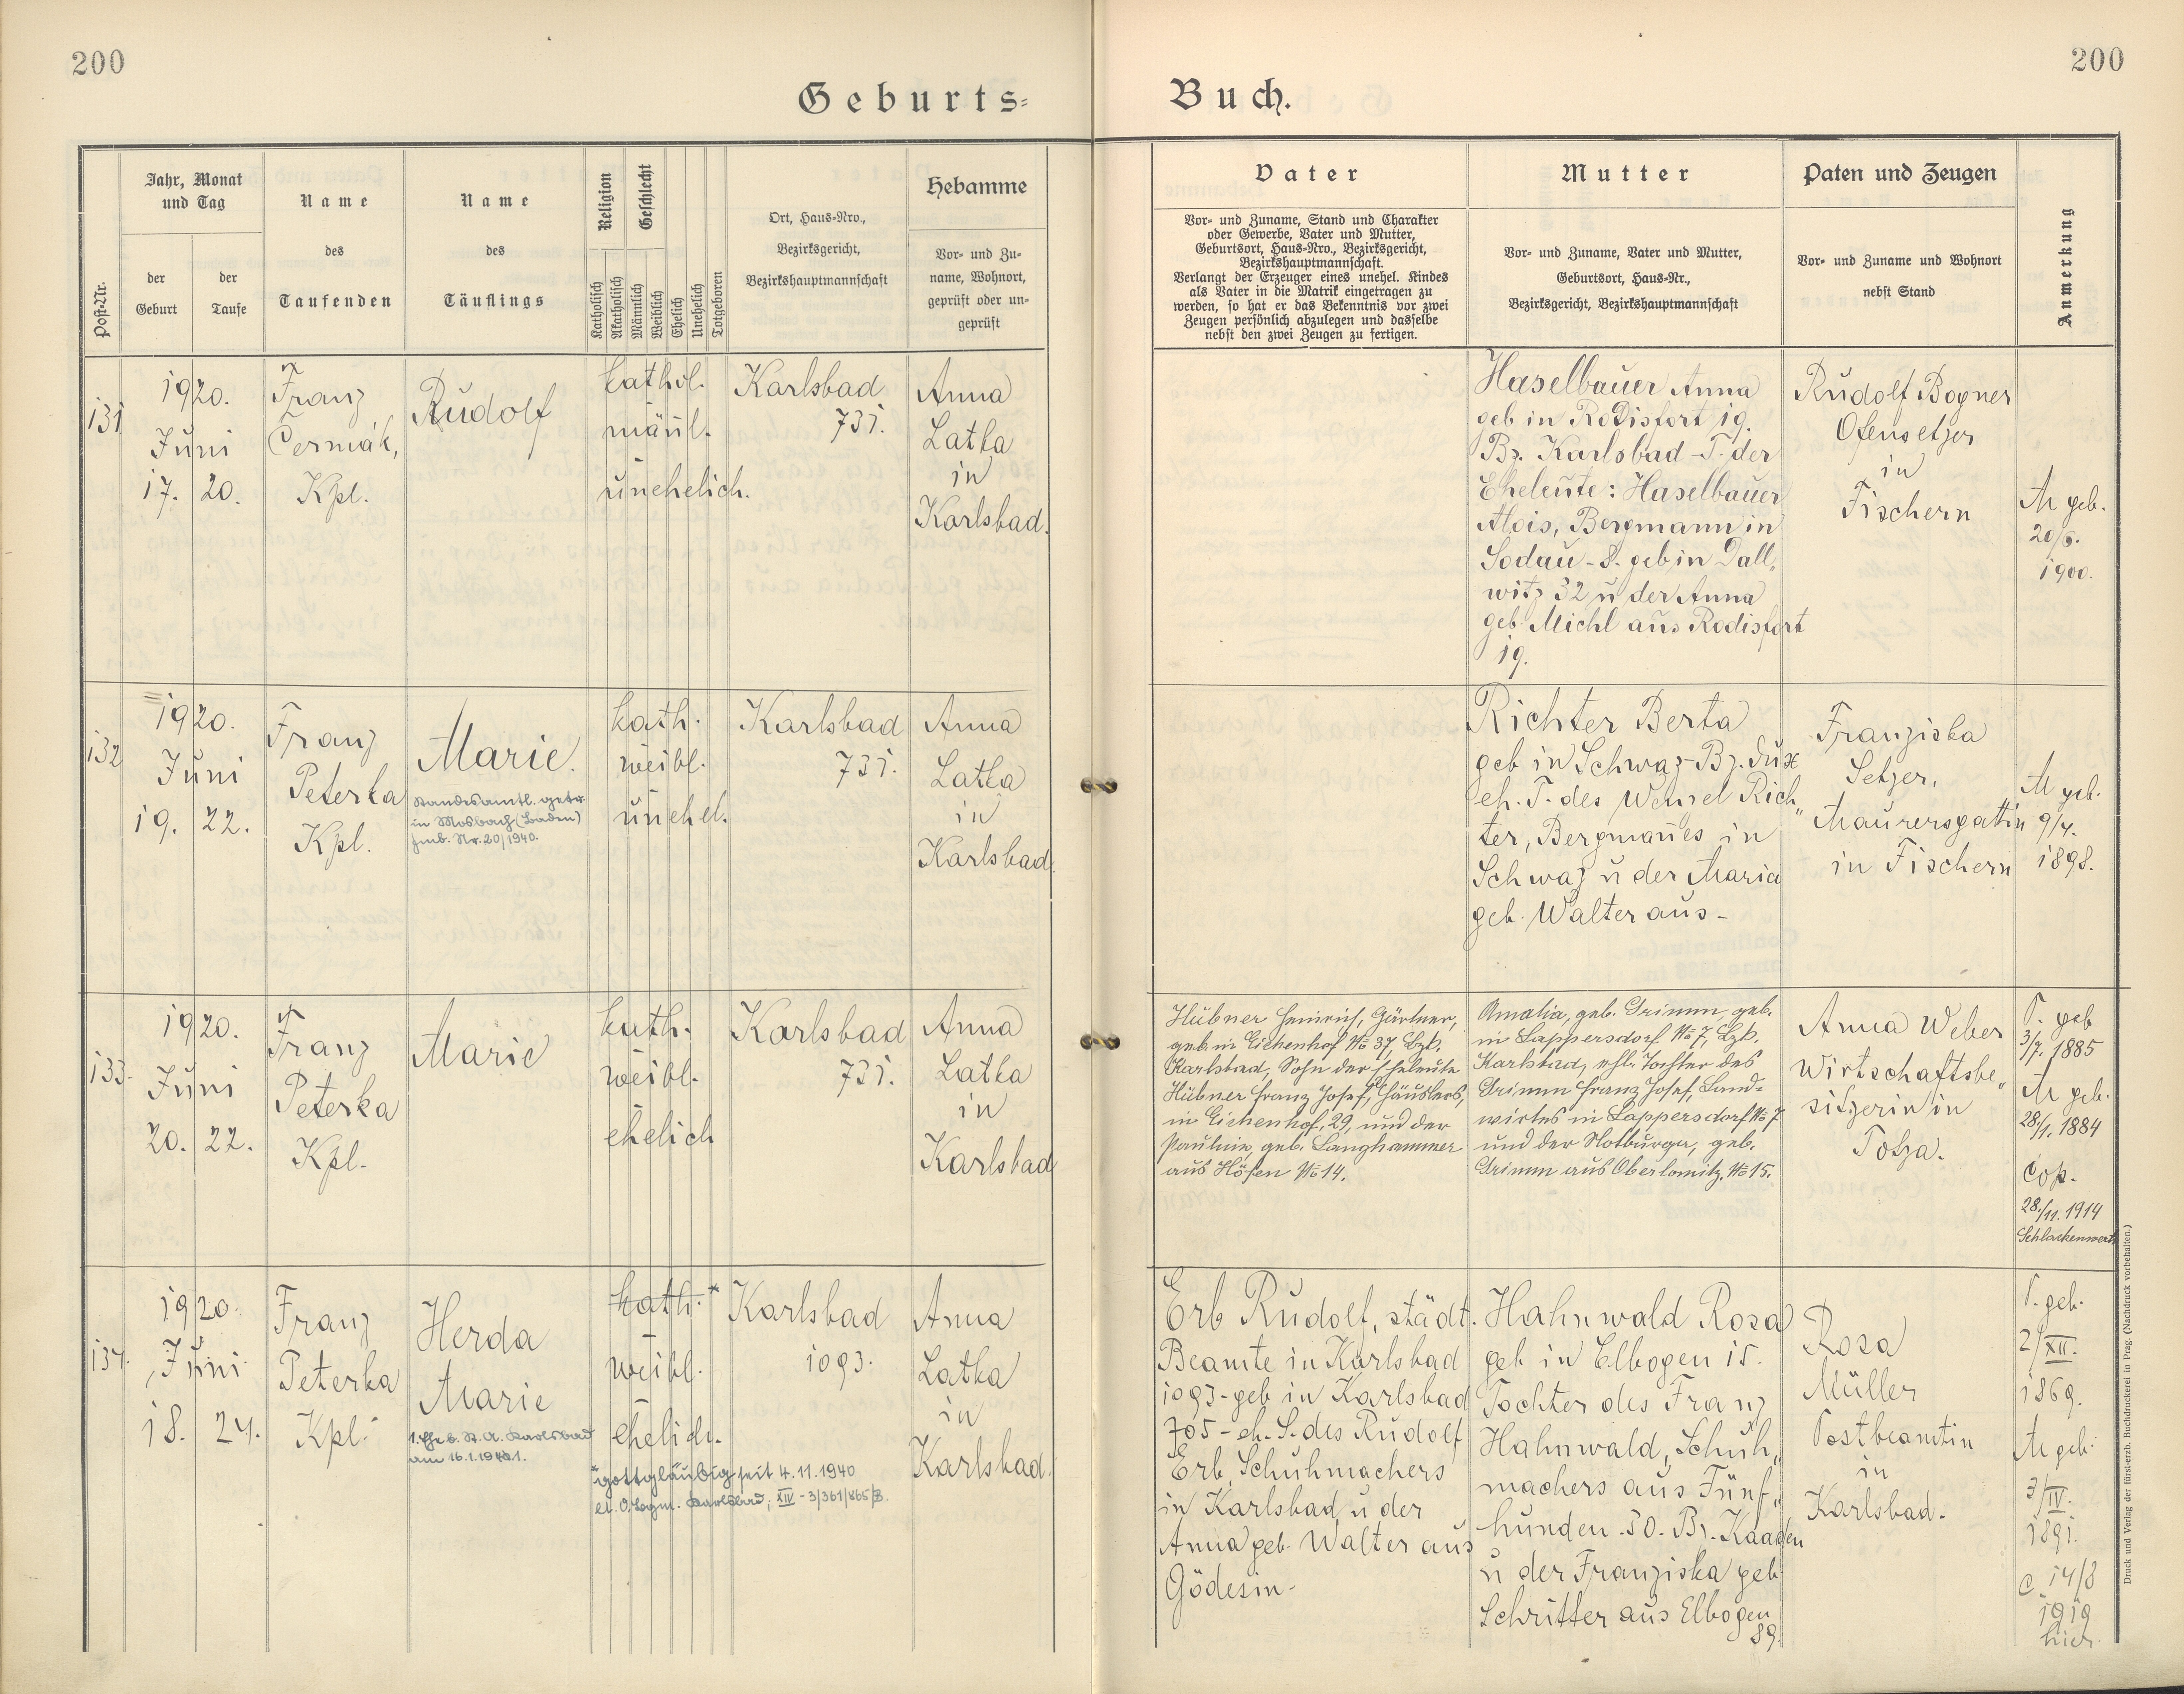 200
200
Geburts-
Buch.
Post-Nr.
Jahr, Monat
und Tag
der
Geburt
der
Taufe
Name
des
Taufenden
Name
des
Täuflings
Religion
Geschlecht
Katholisch
Akatholisch
Männlich
Weiblich
Ehelich
Unehelich
Totgeboren
Ort, Haus-Nro.,
Bezirksgericht,
Bezirkshauptmannschaft
Hebamme
Vor- und Zu-
name, Wohnort,
geprüft oder un-
geprüft
Vater
Vor- und Zuname, Stand und Charakter
oder Gewerbe, Vater und Mutter,
Geburtsort, Haus-Nro., Bezirksgericht,
Bezirkshauptmannschaft.
Verlangt der Erzeuger eines unehel. Kindes
als Vater in die Matrik eingetragen zu
werden, so hat er das Bekenntnis vor zwei
Zeugen persönlich abzulegen und dasselbe
nebst den zwei Zeugen zu fertigen.
Mutter
Vor- und Zuname, Vater und Mutter,
Geburtsort, Haus-Nr.,
Bezirksgericht, Bezirkshauptmannschaft
Paten und Zeugen
Vor- und Zuname und Wohnort
nebst Stand
Anmerkung
131
1920.
Juni
17. 20.
Franz
Čermák,
Kpl.
Rudolf
kathol.
männl.
unehelich.
Karlsbad
731.
Anna
Latka
in
Karlsbad.
Haselbauer Anna
geb in Rodisfort 19.
Bz. Karlsbad - T. der
Eheleute: Haselbauer
Alois, Bergmann in
Sodau - S. geb in Dall„
witz 32 u der Anna
geb. Michl aus Rodisfort
19.
Rudolf Bogner
Ofensetzer
in
Fischern
M geb.
20/6.
1900.
132
1920.
Juni
19. 22.
Franz
Peterka
Kpl.
Marie.
Standesamtl. getr.
in Mosbach (Baden)
Nr. 20/1940.
kath.
weibl.
unehel.
Karlsbad
731.
Anna
Latka
in
Karlsbad.
Richter Berta
geb in Schwaz - Bz. Dux
eh. T. des Wenzel Rich„
ter, Bergmanes in
Schwaz u der Maria
geb. Walter aus -
Franziska
Setzer,
Maurersgattin
in Fischern
M geb.
9/4.
1898.
133.
1920.
Juni
20. 22.
Franz
Peterka
Kpl.
Marie
kath.
weibl.
ehelich
Karlsbad
731.
Anna
Latka
in
Karlsbad
Hübner Heinrich, Gärtner,
geb. in Eichenhof № 37, Bzk.
Karlsbad, Sohn der Eheleute
Hübner Franz Josef, Häuslers,
in Eichenhof, 29, und der
Pauline, geb. Langhammer
aus Höfen № 14.
Amalia, geb. Grimm, geb.
in Lappersdorf № 7, Bzk.
Karlsbad, ehl. Tochter des
Grimm Franz Josef, Land-
wirtes in Lappersdorf № 7
und der Notburga, geb.
Grimm aus Oberlomitz, № 15.
Anna Weber
Wirtschaftsbe„
sitzerin in
Totza.
V. geb
3/7. 1885
M geb.
28./1. 1884
Cop.
28./11. 1914
Schlackenwerth
134.
1920.
Juni
18. 24.
Franz
Peterka
Kpl.
Herda
Marie
1. Ehe b. St. A. Karlsbad
am 16.1.1941.
kath.*
weibl.
ehelich.
*gottgläubig seit 4.11.1940
Karlsbad, XIV - 3/361/865/8.
Karlsbad
1093.
Anna
Latka
in
Karlsbad.
Erb Rudolf, städt.
Beamte in Karlsbad
1093 - geb in Karlsbad
705 - eh. S. des Rudolf
Erb, Schuhmachers
in Karlsbad u der
Anna geb. Walter aus
Gödesin -
Hahnwald Rosa
geb in Elbogen 15.
Tochter des Franz
Hahnwald, Schuh„
machers aus Fünf„
hunden. 50. Bz. Kaaden
u der Franziska geb
Schritter aus Elbogen
89.
Rosa
Müller
Postbeamtin
in
Karlsbad.
V. geb.
2/XII.
1869.
M geb.
3/IV.
1891.
C. 14/8
1919
hier.
Druck und Verlag der fürst-erzb. Buchdruckerei in Prag. (Nachdruck vorbehalten.)